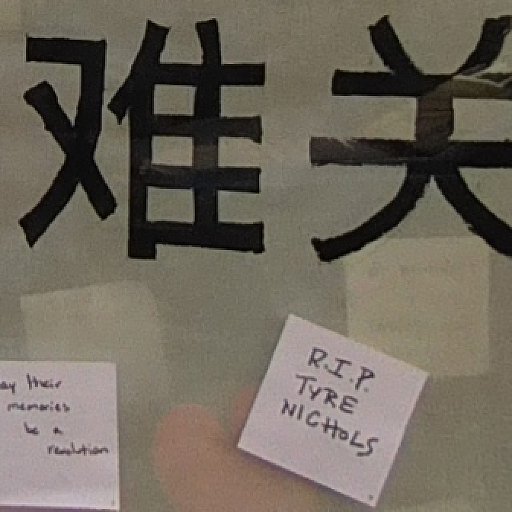 难关
ay their
memories
be a
revolution
R.I.P.
TYRE
NICHOLS